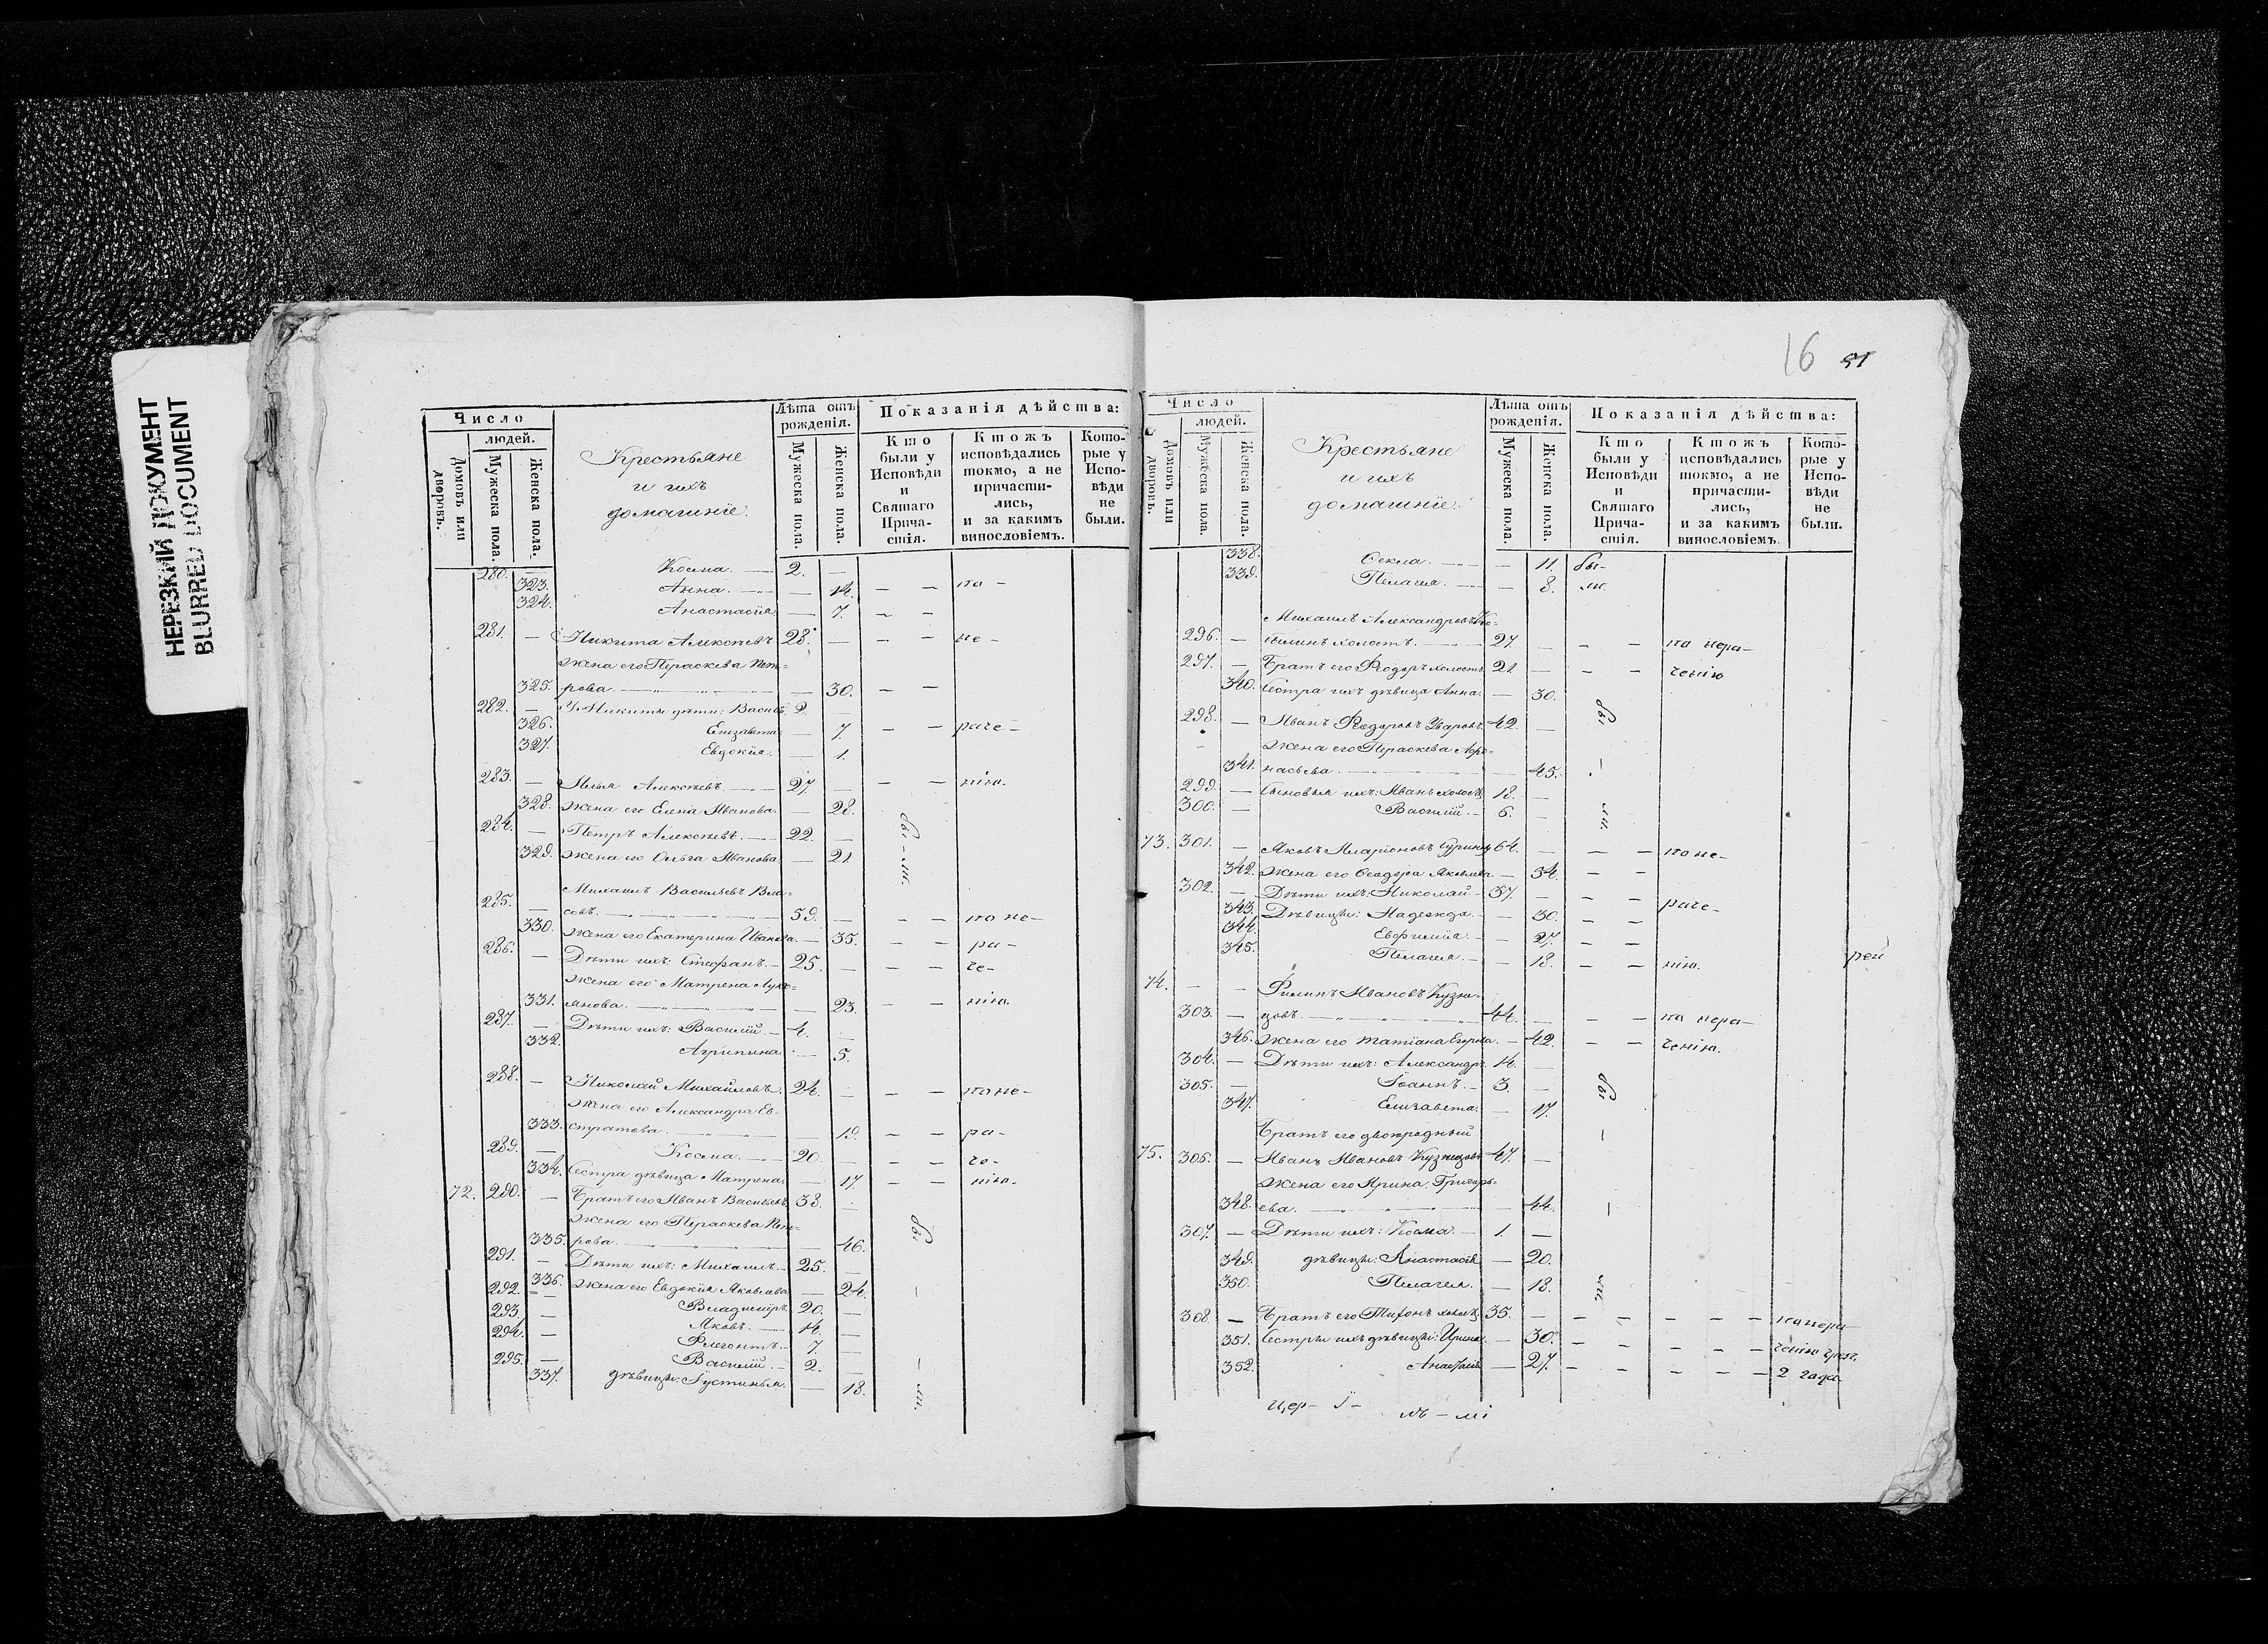 НЕРЕЗКИЙ ДОКУМЕНТ
BLURRED DOCUMENT
Число
людей.
Домовъ или дворовъ.
Мужеска пола.
Женска пола.
Крестьяне
и ихъ
домашніе
Лѣта отъ рожденія.
Мужеска пола.
Женска пола.
Показанія дѣйства:
Кто были у Исповѣди и Святаго Причастія.
Ктожъ исповѣдались токмо, а не причастились, и за какимъ винословіемъ.
Которые у Исповѣди не были.
280. — Косма. — 2. —
323. Анна. — — 14. — — по —
324. Анастасія — 7. — —
281. — Никита Алексѣевъ 28. — — — не —
жена его Параскева Пет=
325. рова. — — 30. — —
282. — У Никиты дѣти: Василій 2. —
326. Елизавета — 7. — — раче —
327. Евдокія. — 1.
283. — Илья Алексѣевъ. — 27. — — — нію.
328. жена его Елена Иванова. — 28.
284. — Петръ Алексѣевъ. — 22. —
329. жена его Ольга Иванова. — 21
бы — ли.
Михаилъ Васильевъ Вла=
285. — совъ. — 59. — — — по не —
330. жена его Екатерина Иванова. — 35. — — ра —
286. — Дѣти ихъ: Стефанъ. — 25. — — — че —
жена его Матрена Лукі=
331. янова. — — 23. — — нію.
287. — Дѣти ихъ: Василій. — 4. —
332. Агрипина — 5.
288. — Николай Михайловъ. 24. — — — по не —
жена его Александра Ев=
333. стратова. — — 19. — — ра —
289. — Косма. — 20. — — — че —
334. Сестра дѣвица Матрена — 17. — — нію.
72. 290. — Братъ его Иванъ Васильевъ 38. —
жена его Параскева Пет=
335. рова. — — 46.
291. — Дѣти ихъ: Михаилъ. — 25. —
336. жена его Евдокія Яковлева — 24.
292. — Владиміръ. 20. —
293. — Яковъ. — 14. —
294. — Флегонтъ. — 7. —
295. — Василій. — 2. —
337. дѣвица: Іустинья. — 18.
бы — — ли.
16 51
Число
людей.
Домовъ или дворовъ.
Мужеска пола.
Женска пола.
Крестьяне
и ихъ
домашніе.
Лѣта отъ рожденія.
Мужеска пола.
Женска пола.
Показанія дѣйства:
Кто были у Исповѣди и Святаго Причастія.
Ктожъ исповѣдались токмо, а не причастились, и за какимъ винословіемъ.
Которые у Исповѣди не были.
338. Ѳекла. — — 11. бы —
339. Пелагея. — — 8. ли.
Михаилъ Александровъ
296. — холостъ. — 27. — — — по нера —
297. — Братъ его Ѳеодоръ холостъ. 21 — — — ченію
340. Сестра ихъ дѣвица Анна. — 30.
298. — Иванъ Ѳеодоровъ Уваровъ. 42. —
жена его Параскева Аѳа=
341. насьева. — — 45.
299. — Сыновья ихъ: Иванъ холостъ 18. —
300. — Василій. — 6. —
бы — ли.
73. 301. — Яковъ Иларіоновъ 64. — — — по не —
342. жена его Ѳеодора Яковлева. — 54. — —
302. — Дѣти ихъ: Николай — 37. — — — раче —
343. Дѣвицы: Надежда. — — 30. — —
344. Евфимія. — — 27. — —
345. Пелагея. — — 18. — — нію.
рей
74. — — Филипъ Ивановъ Кузне=
303. — цовъ. — 44. — — — по нера —
346. жена его Татіана Егорова. — 42. — — ченію.
304. — Дѣти ихъ: Александръ. 14. —
305. — Іоаннъ. — 3. —
347. Елизавета. — 17.
Братъ его двоюродный
75. 306. — Иванъ Ивановъ Кузнецовъ 47. —
жена его Ирина Григорь=
348. ева. — — 44.
307. — Дѣти ихъ: Косма. — 1. —
349. дѣвицы: Анастасія — 20.
350. Пелагея. — 18.
бы — — ли.
308. — Братъ его Тихонъ холостъ. 35. — — — — — — по нера —
351. Сестры ихъ дѣвицы: Ирина. — 30. — — — — — ченію
352. Анастасія — 27. — — — — — 2 года
цер — І — лъ — мі